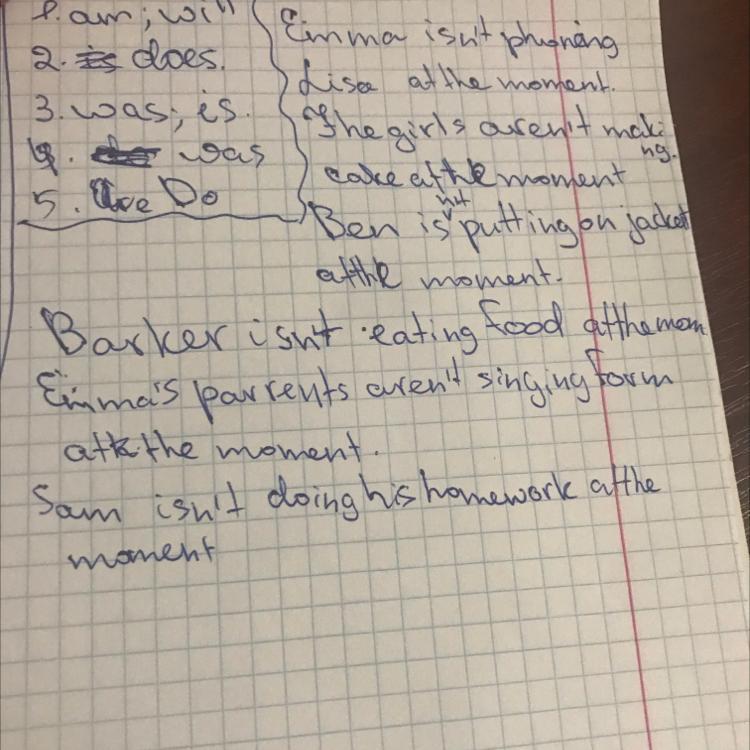 1. am; will
2. does.
3. was; is.
4. was
5. Do
Emma isn't phoning
Lisa at the moment.
The girls aren't maki
ng.
cake at the moment
Ben isn't putting on jacket
at the moment.
Barker isn't eating food at the mom
Emma's parrents aren't singing form
at the moment.
Sam isn't doing his homework at the
moment